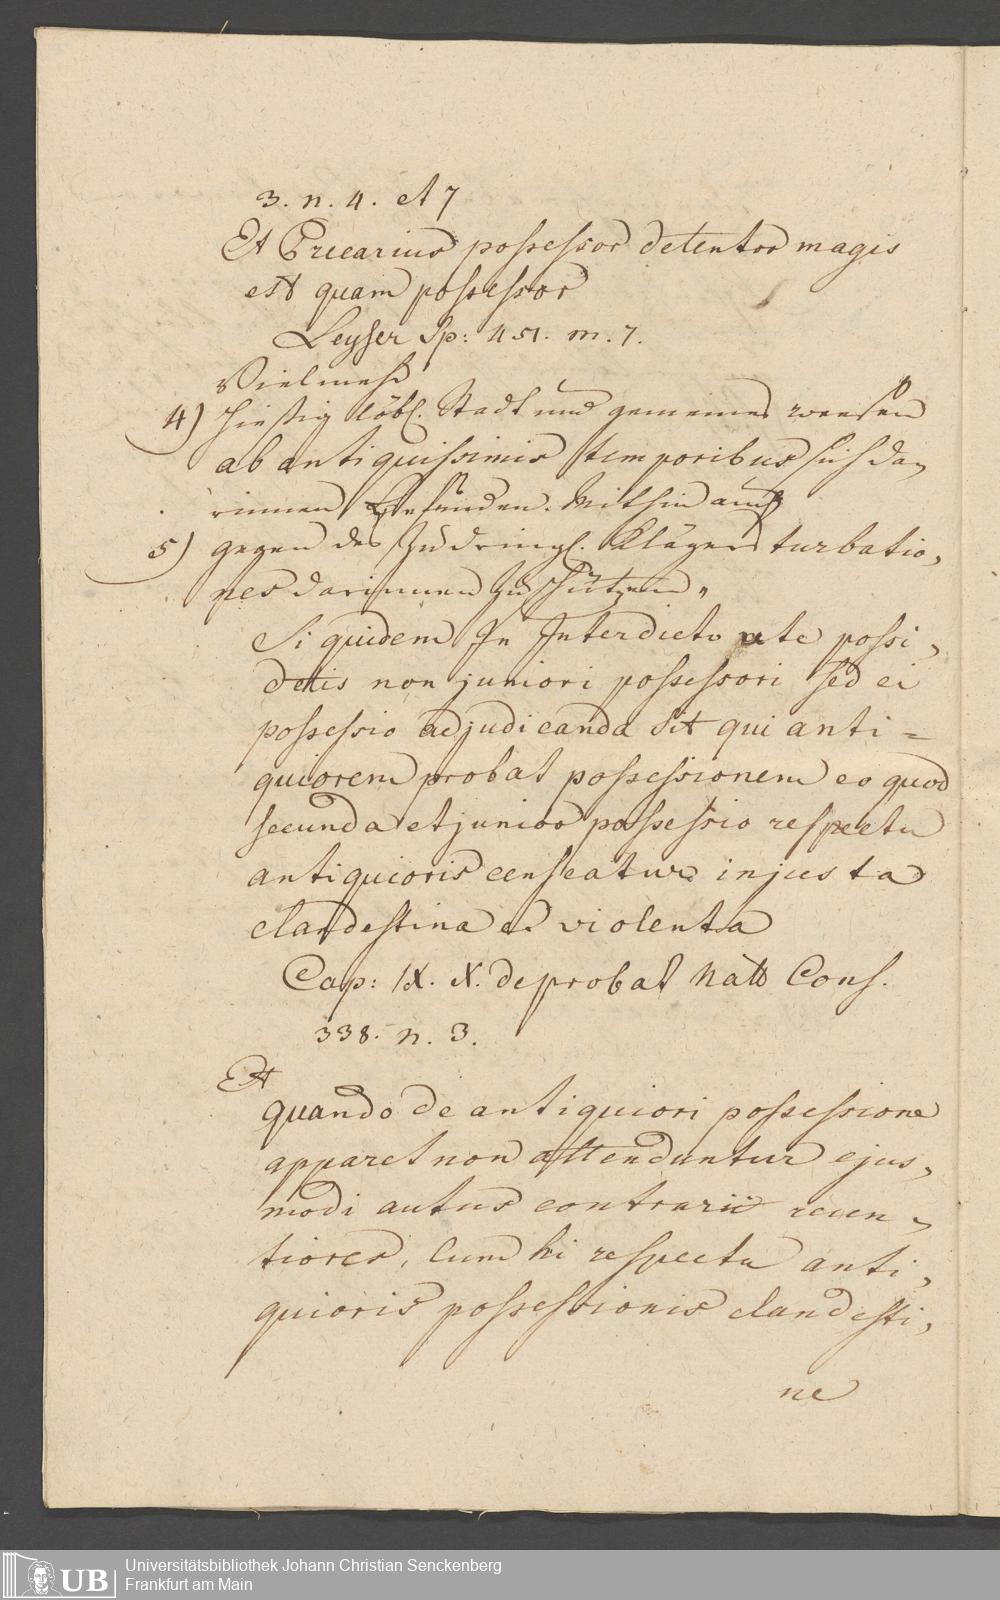 3. n. 4. et 7
Et Precarius possessor detentor magis
est quam possessor
Leyser Sp: 451. m. 7.
Vielmehr
4) hiesig löbl. Stadt und gemeines weesen
ab antiquissimis temporibus sich da,
rinnen befunden. Mithin auch
5) gegen des Zudringl. Klägers turbatio,
nes darinnen zu schützen,
Si quidem In Interdicto ute possi,
detis non juniori possessori sed ei
possessio adjudicanda sit qui anti=
quiorem probat possessionem eo quod
secunda et junior possessio respectu
antiquioris censeatur injusta
clandestina et violenta
Cap: IX. X. de probat Natt Cons.
338. n. 3.
Et
quando de antiquiori possessione
apparet non attenduntur ejus,
modi actus contrarii recen,
tiores, Cum hi respectu anti,
quioris possessionis clandesti,
ne
Universitätsbibliothek Johann Christian Senckenberg
Frankfurt am Main
UB